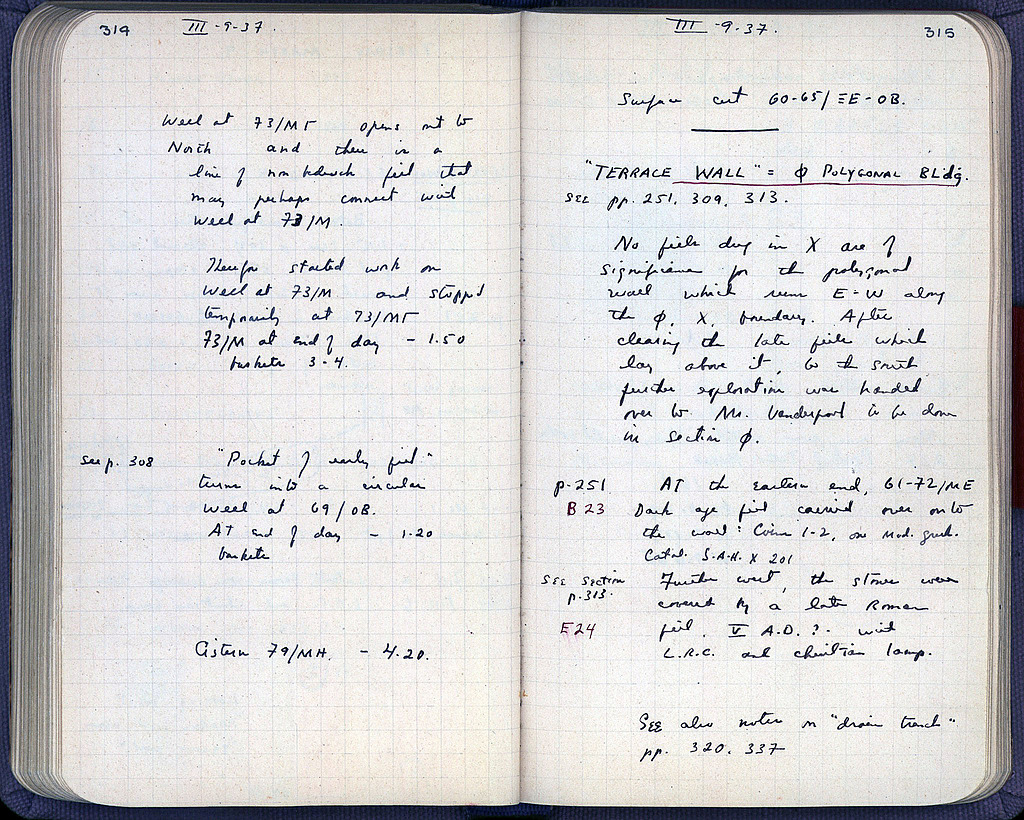 314
III -9-37.
Well at 73/ΜΓ opens out to
North and there is a
line of non bedrock fill that
may perhaps connect with
well at 73/M.
Therefore started work on
well at 73/M and stopped
temporarily at 73/ΜΓ
73/M at end of day - 1.50
baskets 3-4.
See p. 308
"Pocket of early fill"
turns into a circular
well at 69/ΟΒ.
At end of day - 1.20
baskets
Cistern 79/ΜΗ. - 4.20.
III -9-37.
315
Surface cut 60-65/ΞΕ-ΟΒ.
"TERRACE WALL" = Φ POLYGONAL BLdg.
SEE pp. 251, 309, 313.
No fills dug in X are of
significance for the polygonal
wall which runs E-W along
the Φ, X, boundary. After
clearing the late fills which
lay above it, to the south
further exploration was handed
over to Mr. Vanderpool to be done
in section Φ.
p. 251
At the eastern end, 61-72/ΜΕ
B 23
Dark age fill carried over onto
the wall: Coins 1-2, one Mod. Greek.
Catal. S.A.H. X 201
SEE Section
p. 313.
Further west, the stones were
covered by a late Roman
E24
fill, V A.D.? - with
L.R.C. and christian lamp.
SEE also notes on "drain trench"
pp. 320, 337